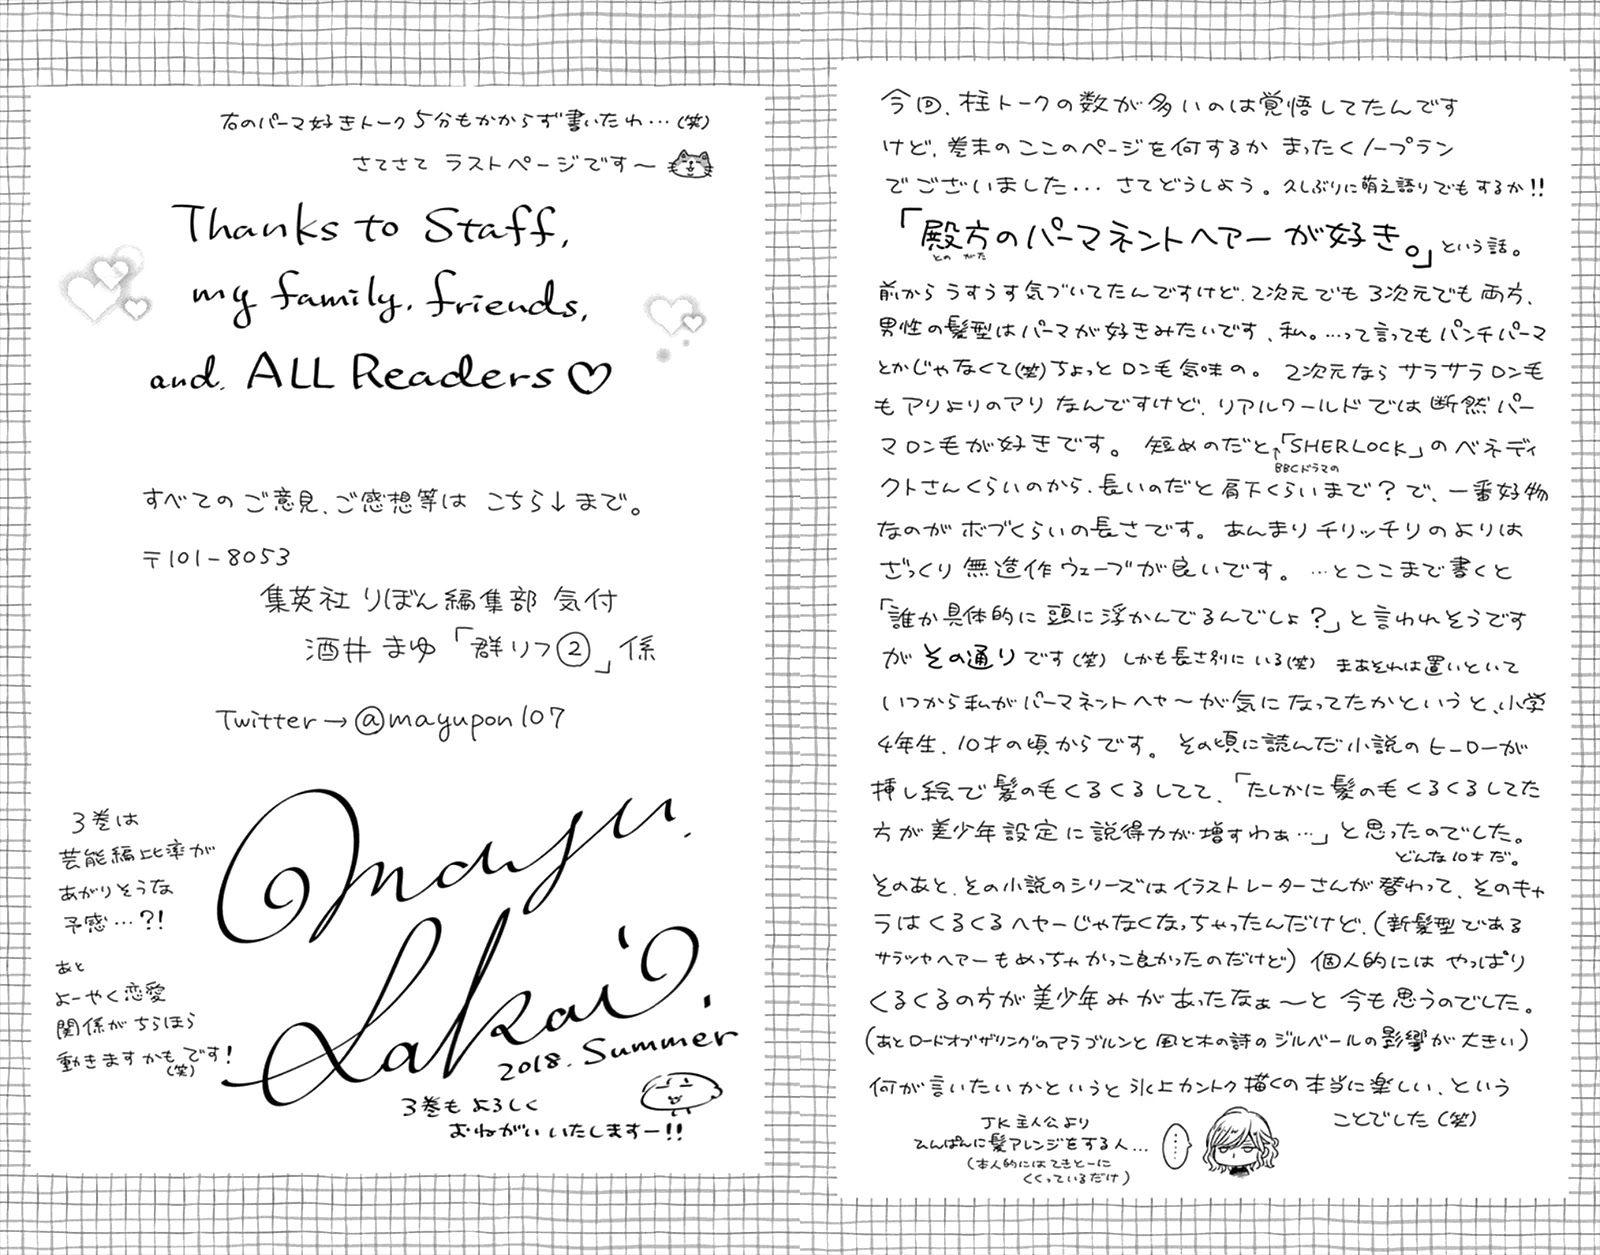 今回、柱トークの数が多いのは覚悟してたんです
けど、巻末のここのページを何するか まったくノープラン
でございました... さてどうしよう。久しぶりに萌え語りでもするか!!
「殿方のパーマネントヘアーが好き。」という話。
とのがた
前から うすうす気づいてたんですけど、2次元でも 3次元でも 両方、
男性の髪型はパーマが好きみたいです、私。…って言ってもパンチパーマ
とかじゃなくて(笑)ちょっと ロン毛気味の。 2次元なら サラサラロン毛
もアリよりのアリ なんですけど、リアルワールドでは断然パー
マロン毛が好きです。 短めのだと↑「SHERLOCK」のベネディ
BBCドラマの
クトさんくらいのから、長いのだと肩下くらいまで?で、一番好物
なのが ボブくらいの長さです。あんまりチリッチリのよりは
ざっくり無造作ウェーブが良いです。…とここまで書くと
「誰か具体的に頭に浮かんでるんでしょ?」と言われそうです
が その通りです(笑) しかも長さ別にいる(笑) まあそれは置いといて
いつから私がパーマネントヘヤ〜が気になってたかというと、小学
4年生、10才の頃からです。その頃に読んだ小説のヒーローが
挿し絵で髪の毛くるくるしてて、「たしかに髪の毛くるくるしてた
方が美少年設定に説得力が増すわぁ…」と思ったのでした。
どんな10才だ。
そのあと、その小説のシリーズはイラストレーターさんが替わって、そのキャ
ラはくるくるヘヤーじゃなくなっちゃったんだけど、(新髪型である
サラツヤヘアーもめっちゃかっこ良かったのだけど) 個人的には やっぱり
くるくるの方が美少年みがあったなぁ〜と今も思うのでした。
(あとロードオブザリングのアラゴルンと 風と木の詩のジルベールの影響が大きい)
何が言いたいかというと氷上カントク描くの本当に楽しい、という
ことでした(笑)
JK主人公より
ひんぱんに髪アレンジをする人…
(本人的にはてきとーに
くくっているだけ)
……
右のパーマ好きトーク 5分もかからず書いたわ…(笑)
さてさて ラストページです〜
Thanks to Staff,
my family, friends,
and, ALL Readers♡
すべてのご意見、ご感想等は こちら↓まで。
〒101-8053
集英社 りぼん編集部 気付
酒井まゆ「群リフ②」係
Twitter→@mayupon107
Mayu.
Sakai.
2018. Summer
3巻は
芸能編比率が
あがりそうな
予感…?!
あと
よーやく恋愛
関係がちらほら
動きますかもです!
(笑)
3巻も よろしく
おねがい いたしますー!!